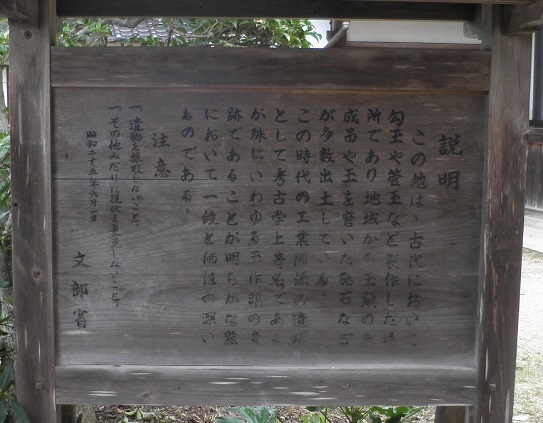 説明
この地は、古代において
勾玉や管玉などを製作した遺
所であり地域から玉類の未
成品や玉を磨いた砥石など
が多数出土している。
この時代の工業関係の遺跡
として考古学上著名であるが
が殊にいわゆる玉作部の遺
跡であることが明らかな点
において一段と価値の深い
ものである。
注意
一、遺物を採取しないこと。
一、その他みだりに現状を変更しないこと。
昭和二十五年六月一日
文部省